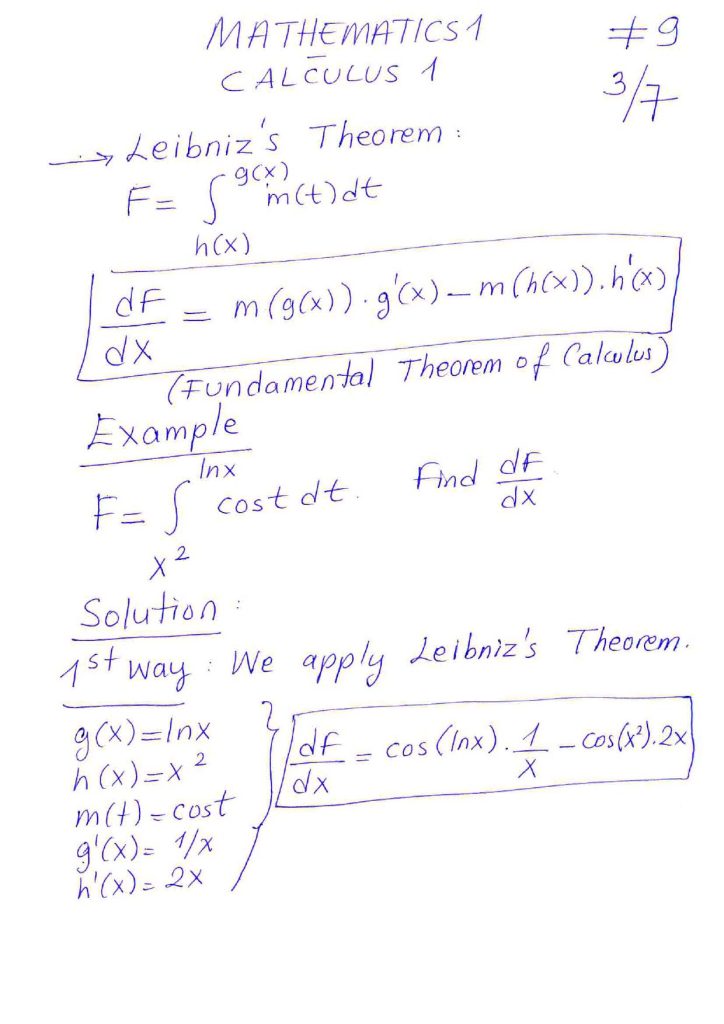 MATHEMATICS 1 #9
CALCULUS 1 3/7
→ Leibniz's Theorem:
F = ∫_{h(x)}^{g(x)} m(t)dt
dF/dx = m(g(x))·g'(x) – m(h(x)).h'(x)
(Fundamental Theorem of Calculus)
Example
F = ∫_{x²}^{lnx} cost dt. Find dF/dx.
Solution:
1st way: We apply Leibniz's Theorem.
g(x)=lnx
h(x)=x²
m(t)=cost
g'(x)= 1/x
h'(x)= 2x
} dF/dx = cos(lnx). 1/x – cos(x²).2x